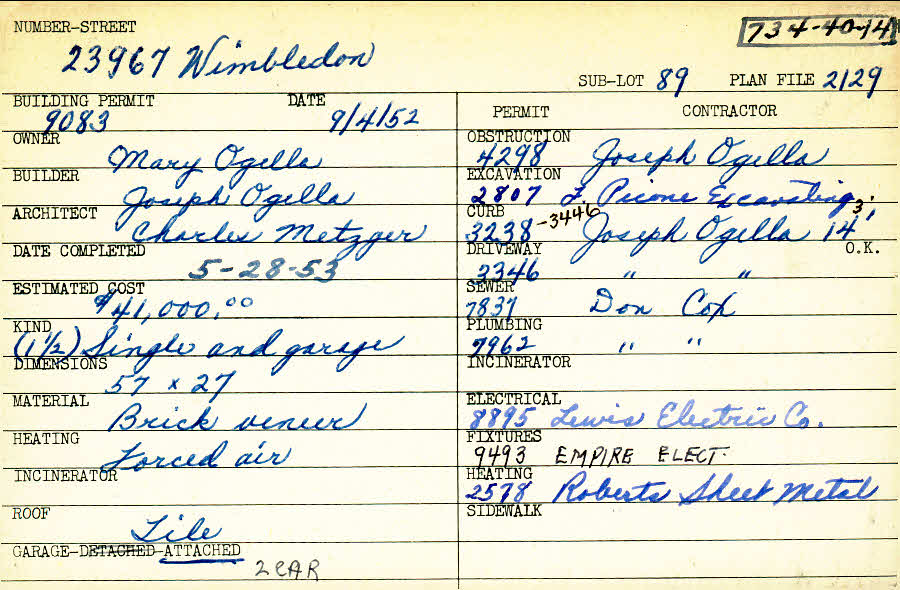 NUMBER-STREET
734-40-14
23967 Wimbledon
SUB-LOT 89 PLAN FILE 2129
BUILDING PERMIT DATE
9083 9/4/52
OWNER
Mary Ogella
BUILDER
Joseph Ogella
ARCHITECT
Charles Metzger
DATE COMPLETED
5-28-53
ESTIMATED COST
$41,000.00
KIND
(1 1/2) Single and garage
DIMENSIONS
57 x 27
MATERIAL
Brick veneer
HEATING
Forced air
INCINERATOR
ROOF
Tile
GARAGE-DETACHED-ATTACHED
2 CAR
PERMIT CONTRACTOR
OBSTRUCTION
4298 Joseph Ogella
EXCAVATION
2807 F. Picone Excavating
CURB
3238-3446 Joseph Ogella 14'
O.K.
DRIVEWAY
3346 " "
SEWER
7837 Don Cox
PLUMBING
7962 " "
INCINERATOR
ELECTRICAL
8895 Lewis Electric Co.
FIXTURES
9493 EMPIRE ELECT.
HEATING
2578 Roberts Sheet Metal
SIDEWALK